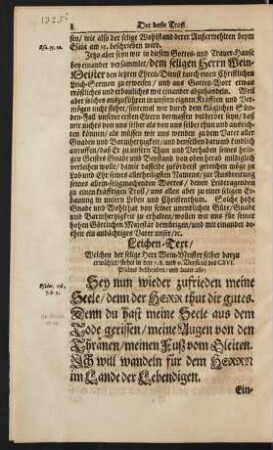 8 Der beste Trost
sen/ wie also der selige Wohlstand derer Außerwehlten beym
Esaia am 35. beschrieben wird.
Esa. 35. 10.
Jetzo aber seyn wir in diesem Gottes- und Trauer-Hause
bey einander versammlet/ dem seligen Herrn Wein-
Meister den letzten Ehren-Dienst durch einen Christlichen
Leich-Sermon zu erweisen/ und aus Gottes-Wort etwas
tröstliches und erbauliches mit einander zu erwegen. Weil
aber solches auszuführen in unsern eignen Kräfften und Ver-
mögen nicht stehet/ sintemal wir durch den kläglichen Sün-
den-Fall unserer ersten Eltern dermassen verderbet seyn/ daß
wir nichts gutes von uns als von uns selber thun und
können/ als müssen wir uns wenden zu dem Vater aller
Gnaden und Barmhertzigkeit/ und denselben darumb kindlich
anruffen/ daß Er zu unserm Thun und Vorhaben seines heili-
gen Geistes Gnade und Beystand von oben herab mildiglich
verleihen wolle/ damit dasselbe zuförderst gereichen möge zu
Lob und Ehr seines allerheiligsten Namens/ zur Ausbreitung
seines allein-seligmachenden Wortes/ denen Leidtragenden
zu einem kräfftigen Trost/ uns allen aber zu einer seligen Er-
bauung in unserm Leben und Christenthum. Solche hohe
Gnade und Wohlthat von seiner unendlichen Güte/ Gnade
und Barmhertzigkeit zu erhalten/ wollen wir uns für seiner
hohen Göttlichen Majestät demütigen/ und mit einander be-
then ein andächtiges Vater unser/ ec.
Leichen-Text/
Welchen der selige Herr Wein-Meister selber darzu
erwählet/ stehet in den 7. 8. und 9. Versicul des CXVI.
Psalms beschrieben/ und lautet also:
Psalm. 116,
7. 8. 9.
Sey nun wieder zufrieden meine
Seele/ denn der HERR thut dir gutes.
Denn du hast meine Seele aus dem
Tode gerissen/ meine Augen von den
Thränen/ meinen Fuß vom Gleiten.
Ich will wandeln für dem HERRN
im Lande der Lebendigen.
Ein-